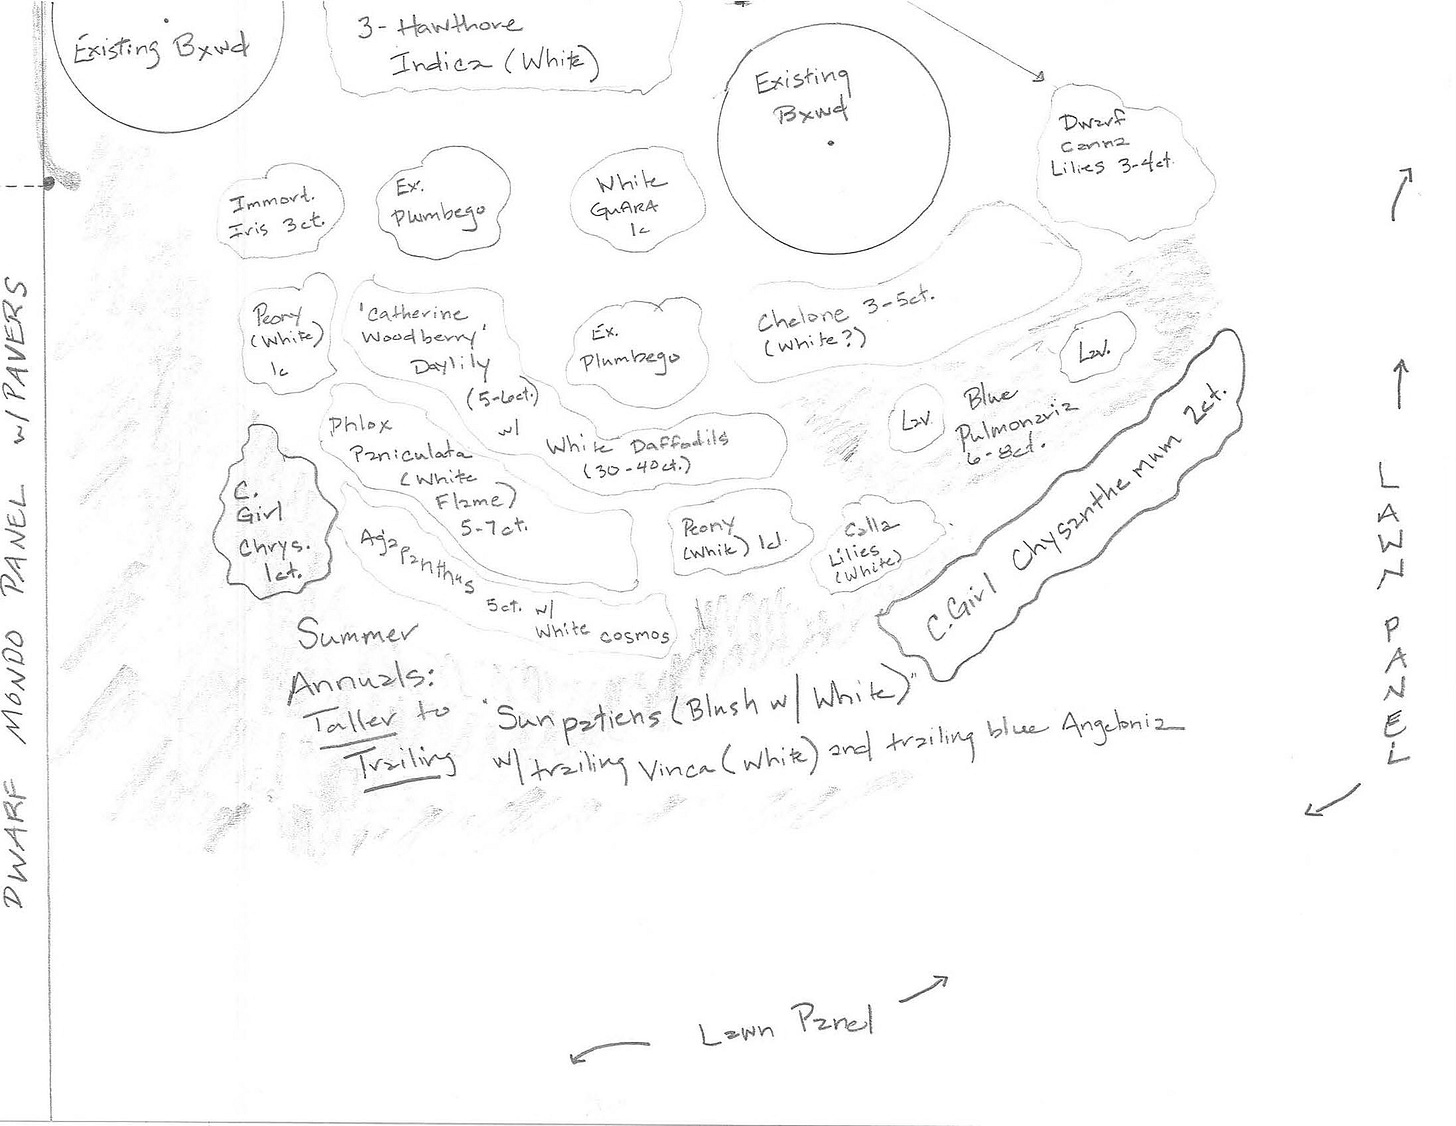 3- Hawthore
Indica (White)
Existing Bxwd
Existing
Bxwd
Dwarf
Canna
Lilies 3-4ct.
Immort.
Iris 3ct.
Ex.
Plumbego
White
GuARA
1c
Peony
(White)
1c
'Catherine
Woodberry'
Daylily
(5-6ct.)
w/
White Daffodils
(30-40ct.)
Ex.
Plumbego
Chelone 3-5ct.
(White?)
Lav.
Lav.
Blue
Pulmonaria
6-8ct.
Phlox
Paniculata
(White
Flame)
5-7ct.
C.
Girl
Chrys.
1ct.
Agapanthus
5ct. w/
White cosmos
Peony
(White) 1ct.
Calla
Lilies
(White)
C. Girl Chysanthemum 2ct.
Summer
Annuals:
Taller to
Trailing
"Sunpatiens (Blush w/ White)"
w/ trailing Vinca (White) and trailing blue Angelonia
DWARF MONDO PANEL w/ PAVERS
LAWN PANEL
Lawn Panel